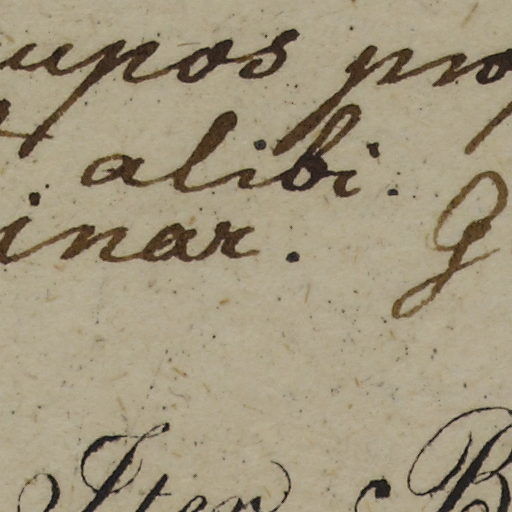 upos pro
alibi.
inar. G
Iter B